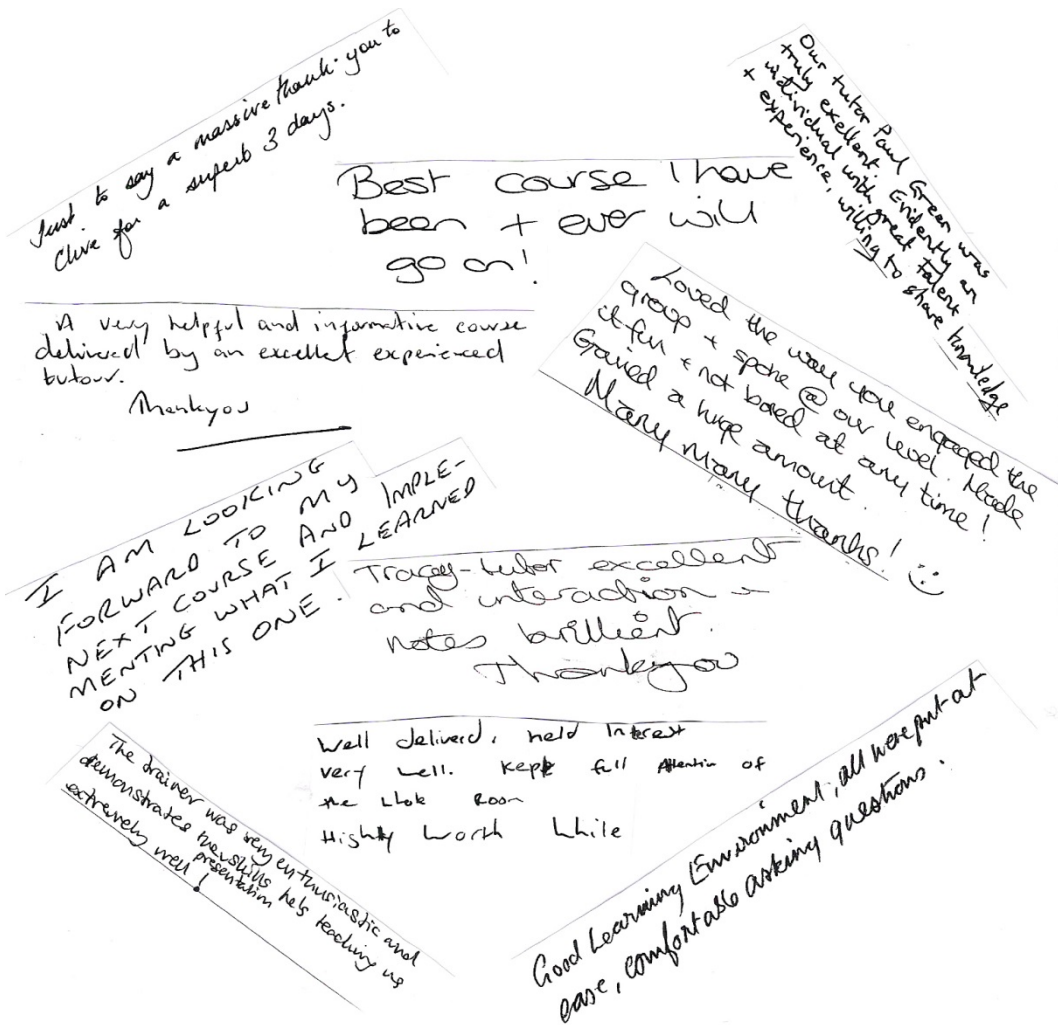 Just to say a massive thank you to
Clive for a superb 3 days.
Our tutor Paul Green was
truly excellent. Evidently an
individual with great talent
+ experience, willing to share knowledge
Best course I have
been + ever will
go on!
A very helpful and informative course
delivered by an excellet experienced
tutour.
Thankyou
Loved the way you engaged the
group + spoke @ our level. Made
it fun + not bored at any time!
Gained a huge amount.
Many Many thanks! :)
I AM LOOKING
FORWARD TO MY
NEXT COURSE AND IMPLE-
MENTING WHAT I LEARNED
ON THIS ONE.
Tracey-tutor excellent
and interaction -
notes brillient.
Thankyou
Well deliverd, held Interest
very well. Kept full Attention of
the whole Room
Highly worth while
The trainer was very enthusiastic and
demonstrates her skills teaching us
presentation
extremely well!
Good Learning Environment, all were put at
ease, comfortable asking questions.